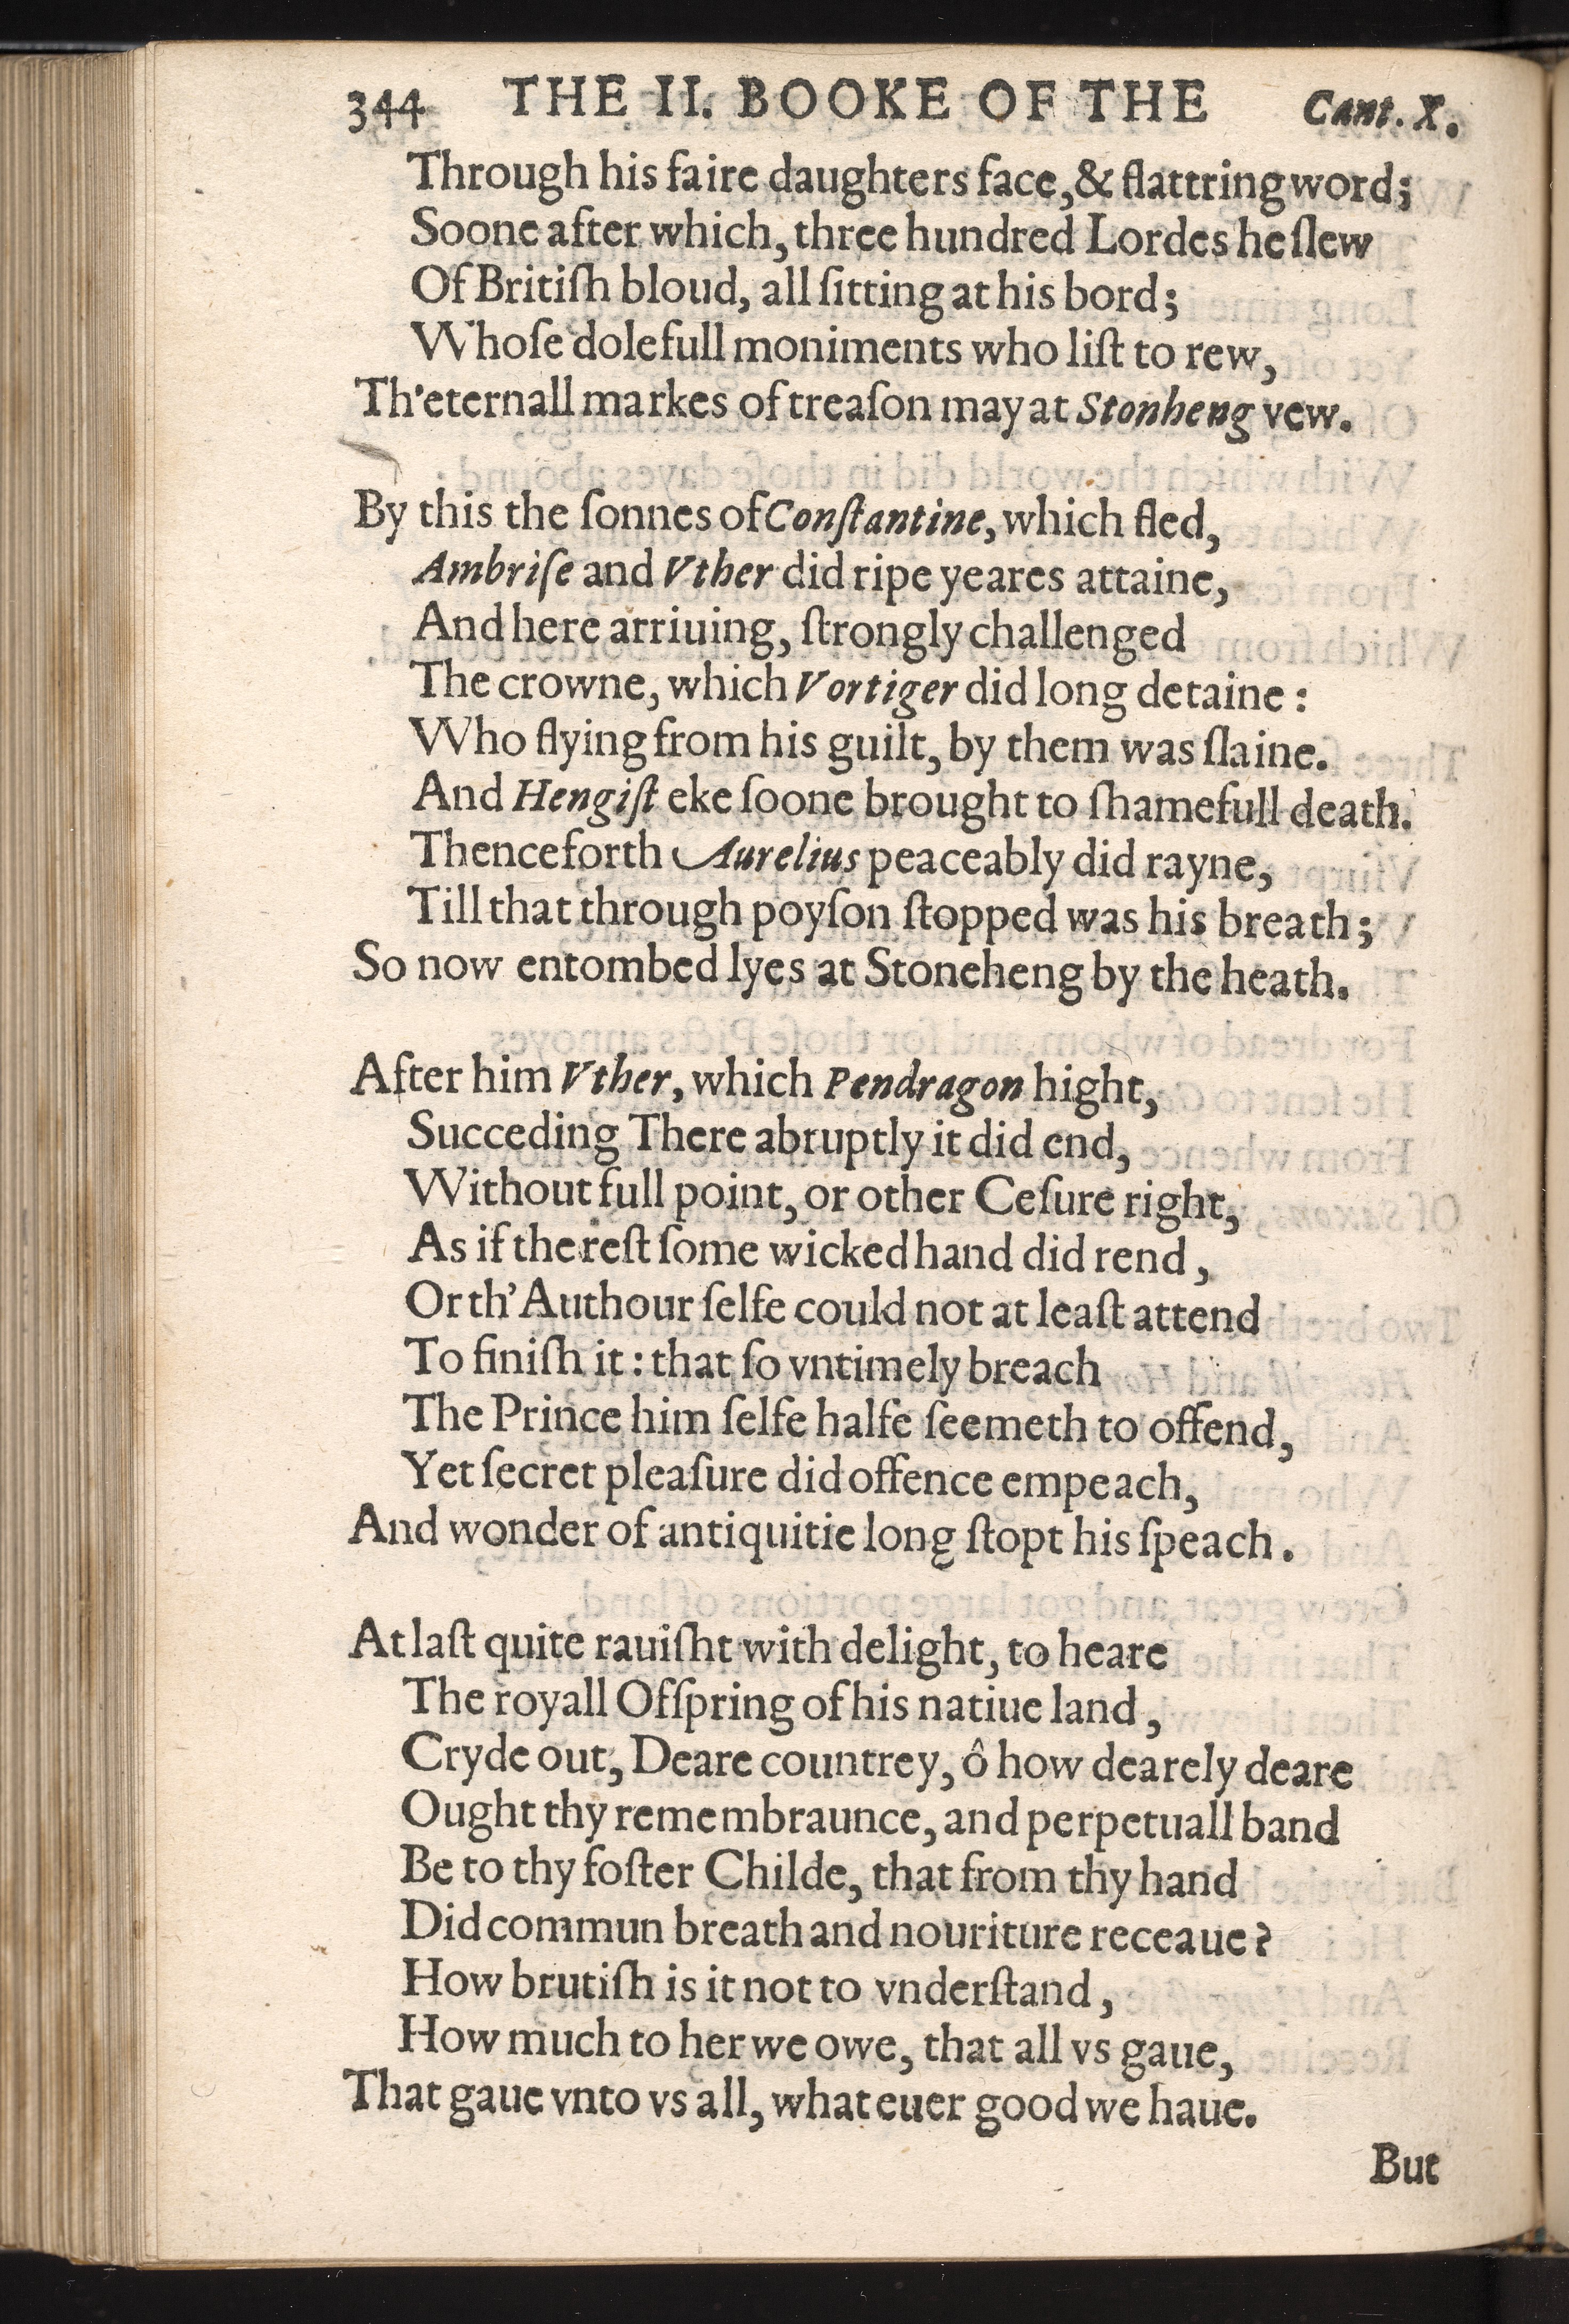 344 THE II. BOOKE OF THE Cant. X.
Through his faire daughters face, & flattring word;
Soone after which, three hundred Lordes he ſlew
Of Britiſh bloud, all ſitting at his bord;
Whoſe dolefull moniments who liſt to rew,
Th'eternall markes of treaſon may at Stonheng vew.
By this the ſonnes of Conſtantine, which fled,
Ambriſe and Vther did ripe yeares attaine,
And here arriuing, ſtrongly challenged
The crowne, which Vortiger did long detaine:
Who flying from his guilt, by them was ſlaine.
And Hengiſt eke ſoone brought to ſhamefull death.
Thenceforth Aurelius peaceably did rayne,
Till that through poyſon ſtopped was his breath;
So now entombed lyes at Stoneheng by the heath.
After him Vther, which Pendragon hight,
Succeding There abruptly it did end,
Without full point, or other Ceſure right,
As if the reſt ſome wicked hand did rend,
Or th'Authour ſelfe could not at leaſt attend
To finiſh it: that ſo vntimely breach
The Prince him ſelfe halfe ſeemeth to offend,
Yet ſecret pleaſure did offence empeach,
And wonder of antiquitie long ſtopt his ſpeach.
At laſt quite rauiſht with delight, to heare
The royall Ofſpring of his natiue land,
Cryde out, Deare countrey, ô how dearely deare
Ought thy remembraunce, and perpetuall band
Be to thy foſter Childe, that from thy hand
Did commun breath and nouriture receaue?
How brutiſh is it not to vnderſtand,
How much to her we owe, that all vs gaue,
That gaue vnto vs all, what euer good we haue.
But